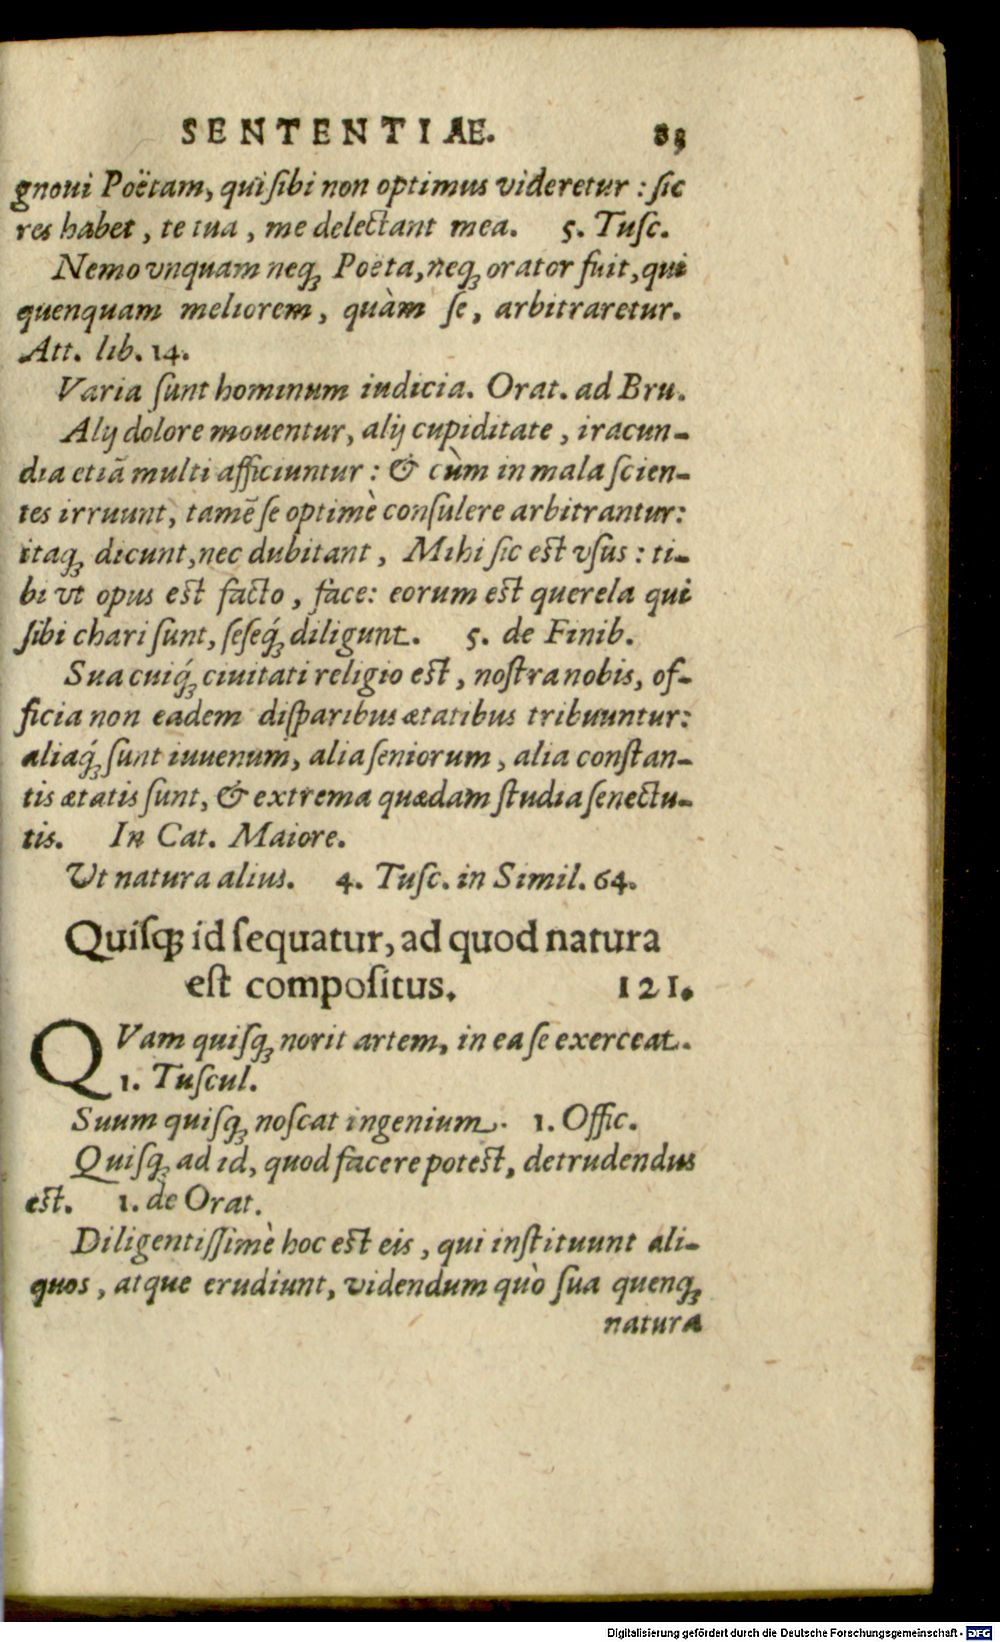 SENTENTIAE. 83
gnoui Poëtam, qui ſibi non optimus videretur : ſic
res habet, te tua, me delectant mea. 5. Tuſc.
Nemo vnquam neqꝫ Poëta, neqꝫ orator fuit, qui
quenquam meliorem, quàm ſe, arbitraretur.
Att. lib. 14.
Varia ſunt hominum iudicia. Orat. ad Bru.
Alij dolore mouentur, alij cupiditate, iracun-
dia etiā multi afficiuntur : & cùm in mala ſcien-
tes irruunt, tamē ſe optimè conſulere arbitrantur:
itaqꝫ dicunt, nec dubitant, Mihi ſic eſt vſus : ti-
bi vt opus eſt facto, face: eorum eſt querela qui
ſibi chari ſunt, ſeſeq́ꝫ diligunt. 5. de Finib.
Sua cuiq́ꝫ ciuitati religio eſt, noſtra nobis, of-
ficia non eadem diſparibus ætatibus tribuuntur:
aliaq́ꝫ ſunt iuuenum, alia ſeniorum, alia conſtan-
tis ætatis ſunt, & extrema quædam ſtudia ſenectu-
tis. In Cat. Maiore.
Ut natura alius. 4. Tuſc. in Simil. 64.
Quiſqꝫ id ſequatur, ad quod natura
eſt compoſitus. 121.
QVam quiſqꝫ norit artem, in ea ſe exerceat.
1. Tuſcul.
Suum quiſqꝫ noſcat ingenium. 1. Offic.
Quiſqꝫ ad id, quod facere poteſt, detrudendus
eſt. 1. de Orat.
Diligentiſſimè hoc eſt eis, qui inſtituunt ali-
quos, atque erudiunt, videndum quò ſua quenqꝫ
natura
Digitalisierung gefördert durch die Deutsche Forschungsgemeinschaft - DFG